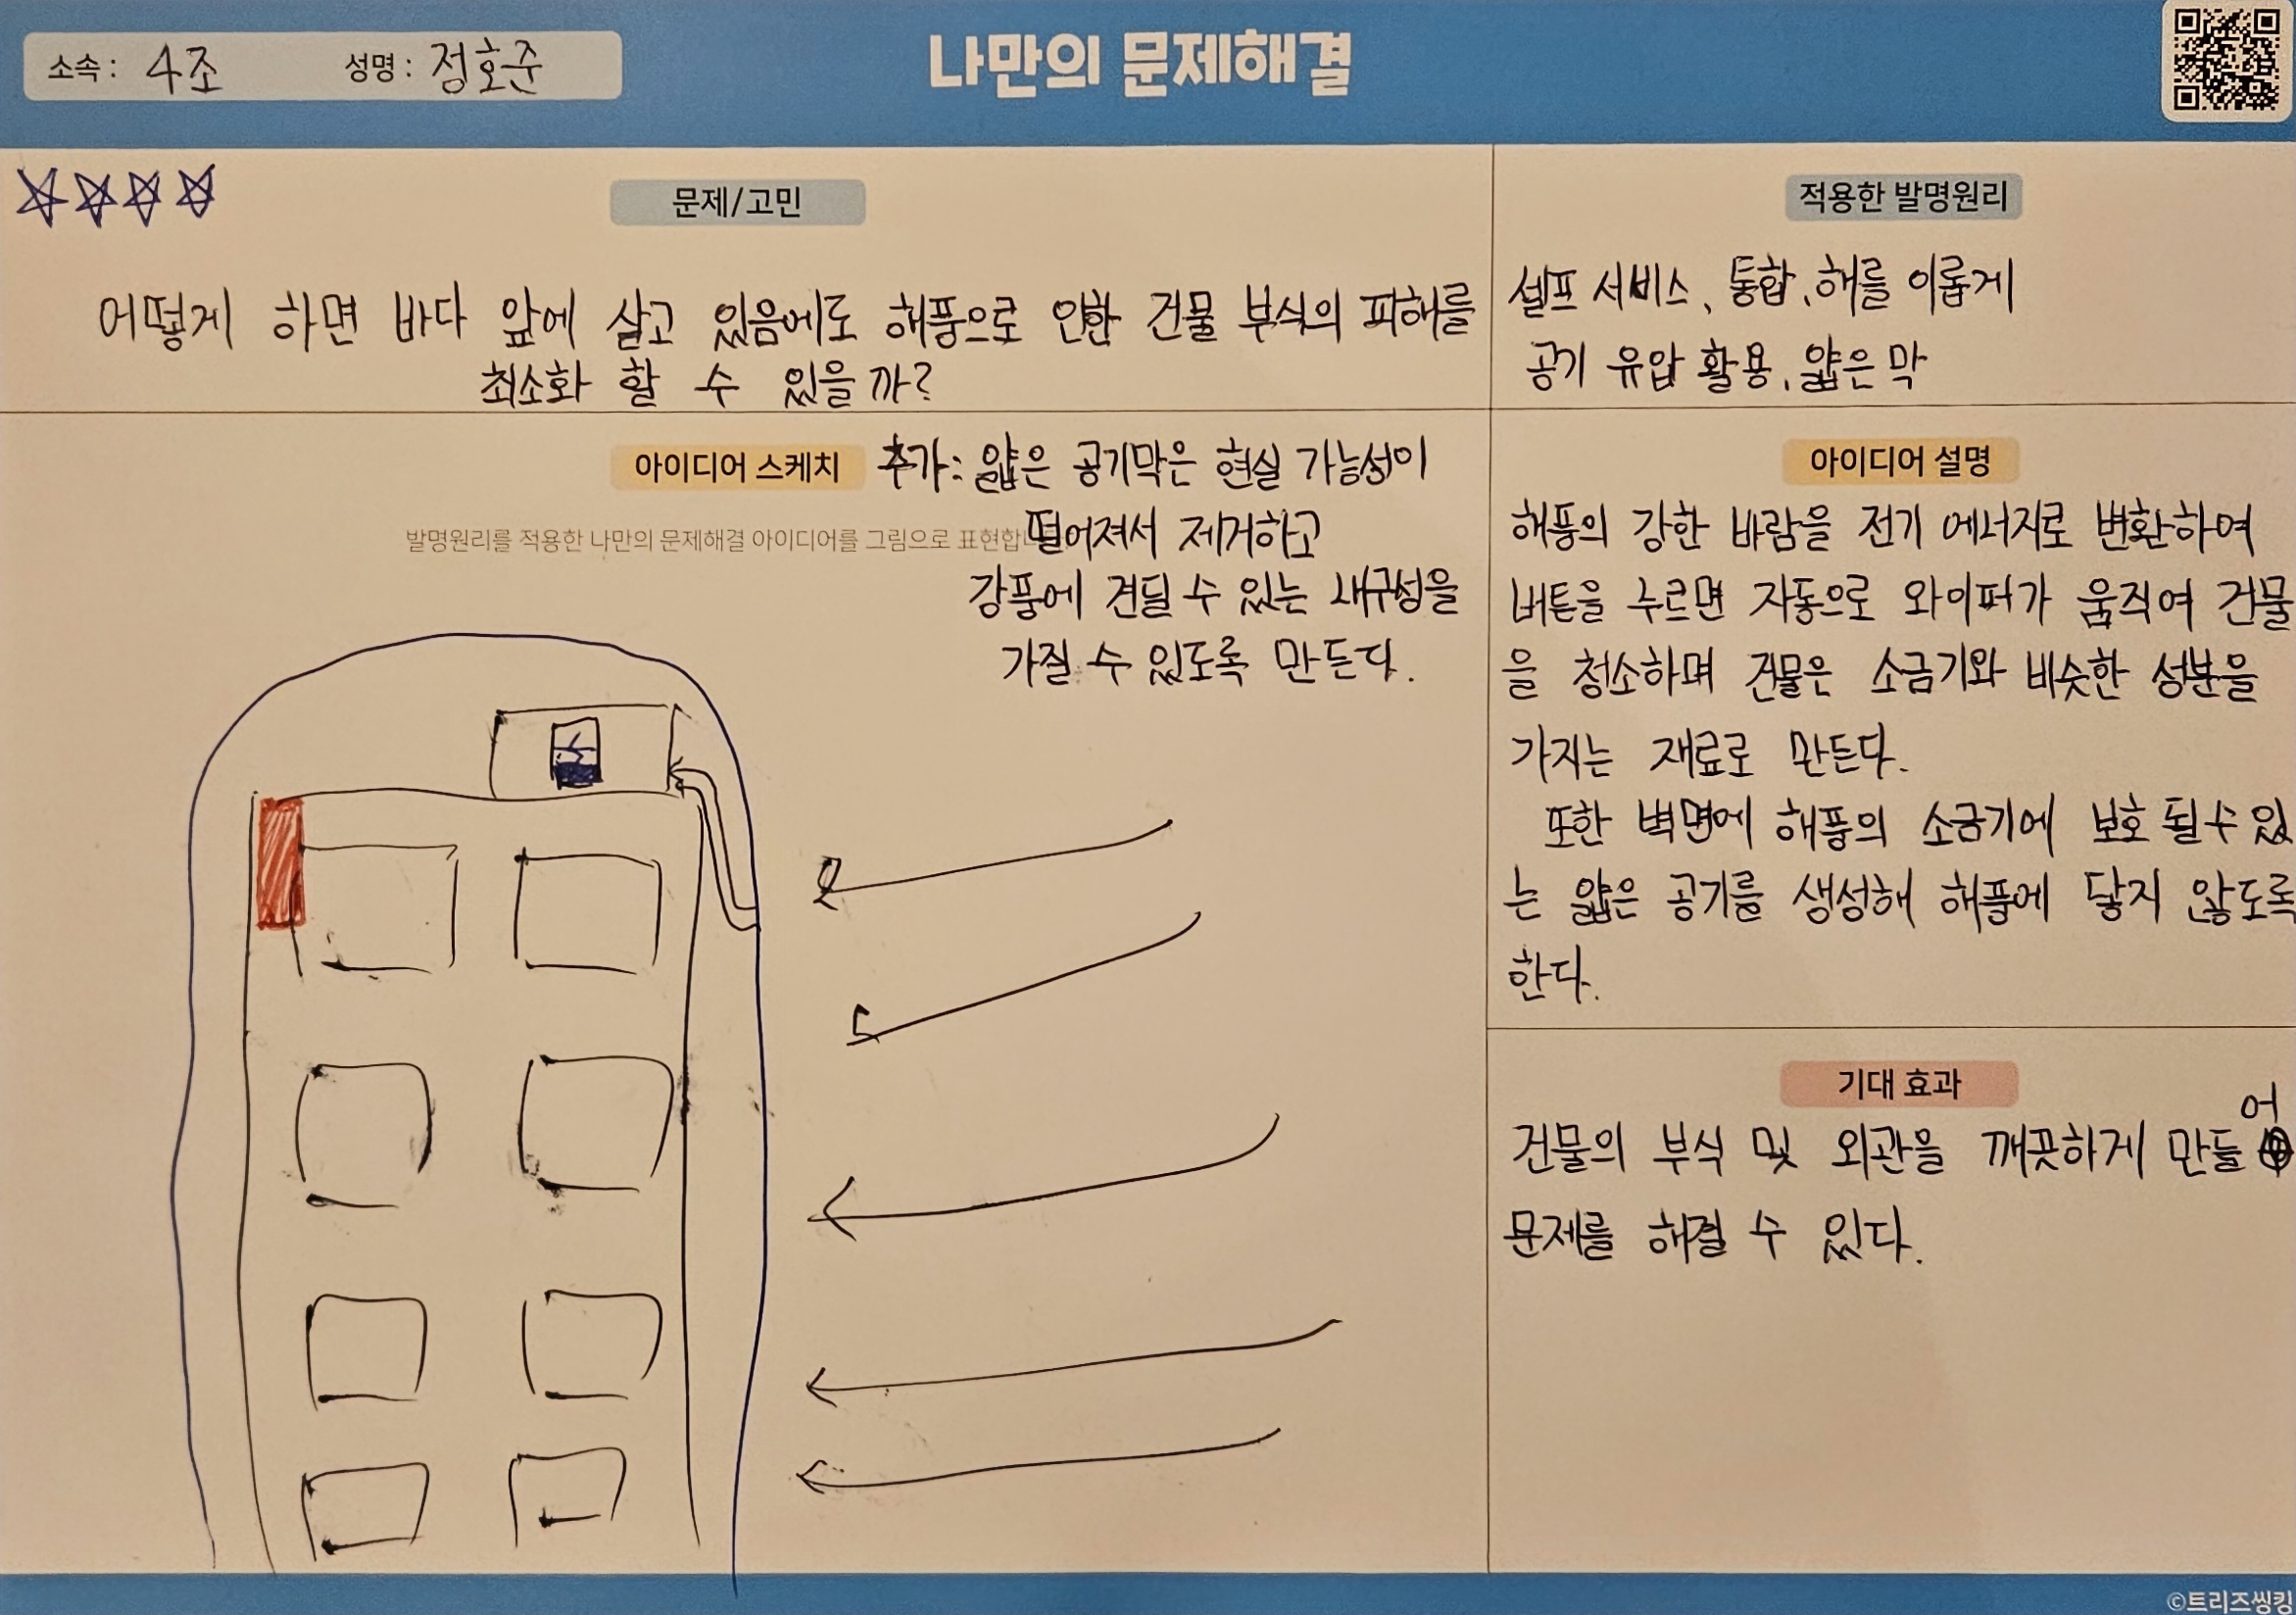 소속 : 4조 성명 : 정호준
나만의 문제해결
문제/고민
어떻게 하면 바다 앞에 살고 있음에도 해풍으로 인한 건물 부식의 피해를
최소화 할 수 있을까?
적용한 발명원리
셀프 서비스, 통합, 해를 이롭게
공기 유압 활용, 얇은 막
아이디어 스케치
추가: 얇은 공기막은 현실 가능성이
떨어져서 제거하고
강풍에 견딜 수 있는 내구성을
가질 수 있도록 만든다.
발명원리를 적용한 나만의 문제해결 아이디어를 그림으로 표현합
아이디어 설명
해풍의 강한 바람을 전기 에너지로 변환하여
버튼을 누르면 자동으로 와이퍼가 움직여 건물
을 청소하며 건물은 소금기와 비슷한 성분을
가지는 재료로 만든다.
또한 벽면에 해풍의 소금기에 보호 될 수 있
는 얇은 공기를 생성해 해풍에 닿지 않도록
한다.
기대 효과
건물의 부식 및 외관을 깨끗하게 만들어
문제를 해결 수 있다.
©트리즈씽킹